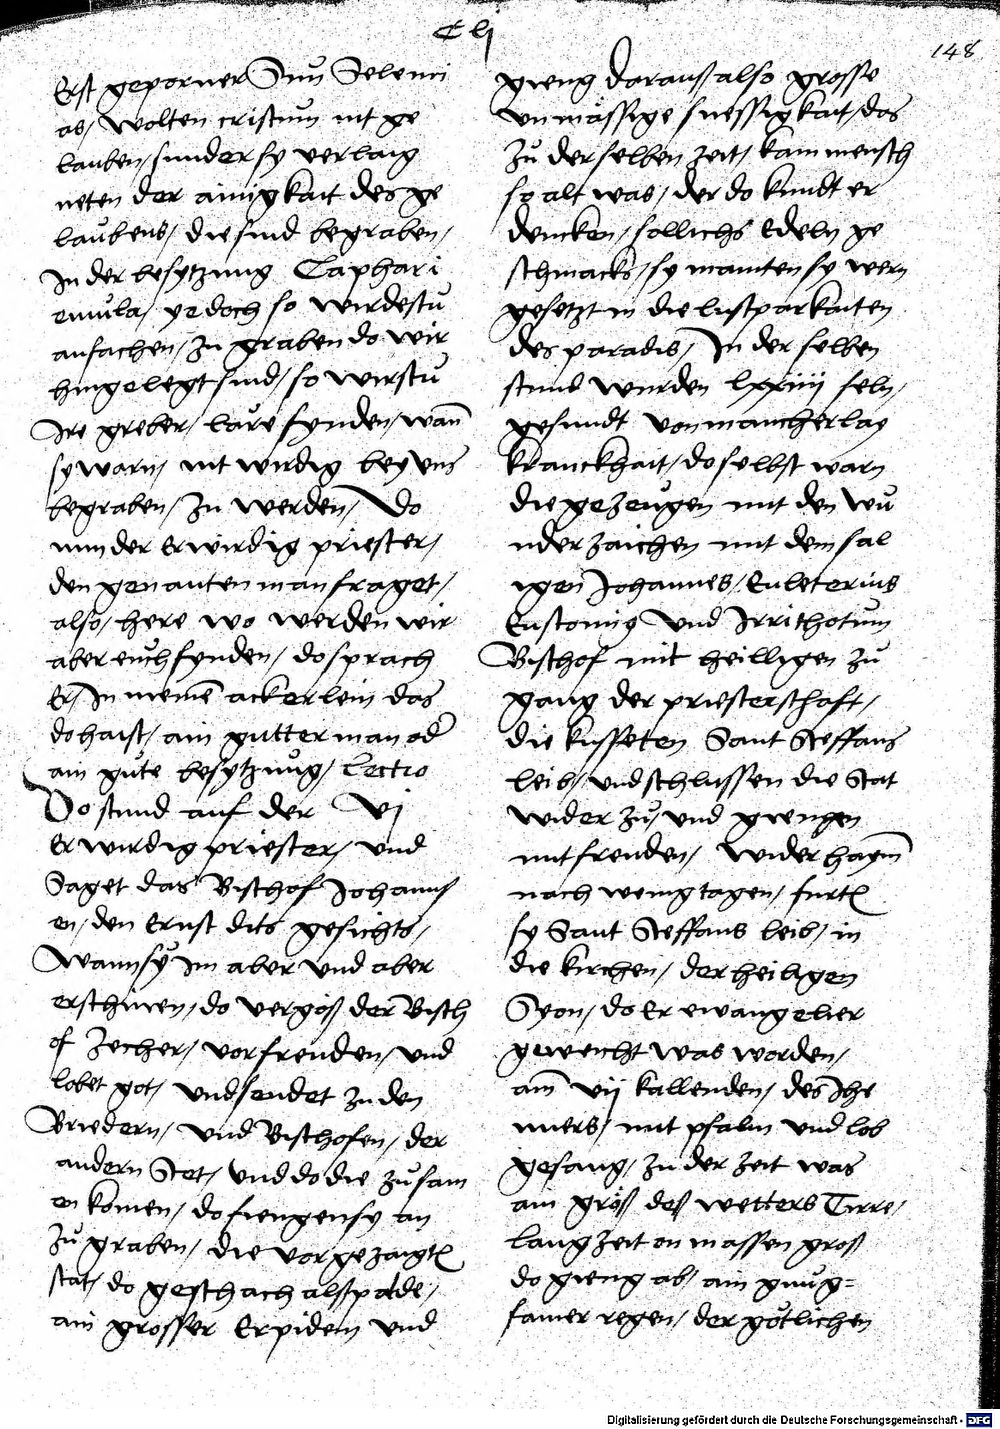 Clj
148
Erst geporner Sun Selemi
as/ wolten cristum nit ge
lauben/ sunder sy verlaug
neten der ainigkait des ge
laubens/ die sind begraben/
In der besytzung Caphari
emula/ yedoch so wirdestu
anfachen/ zu graben do wir
hingelegt sind/ so wirstu
Ire greber/ läre fynden/ wan̄
sy warn/ nit wirdig bey uns
begraben/ zu werden/ Do
nun der Erwirdig priester/
den genanten man fraget/
also/ here wo werden wir
aber euch fynden/ do sprach
Er/ In meinē ackerlein das
do haist/ ain gutter man od̄
ain gute besytzung/ Lectio
Do stund auf der vj
Erwirdig priester/ und
Saget das Bischof Johanns
en/ den Ernst dits gesichts/
Wann sy im aber und aber
erschinen/ do vergoß der Bisch
of Zecher/ vor freuden/ und
lobet got/ und sendet zu den
Briedern/ und Bischofen/ der
andern Stet/ und do die zusam
en komen/ do fiengen sy an
zu graben/ die vorgezaigtē
stat/ do geschach alspalde/
ain grosser Erpidem und
gieng darauß also grosse
unmässige suessigkait/ das
zu der selben zeit/ kam mensch
so alt was/ der do kundt er
dencken/ sollichs Edeln ge
schmacks/ sy mainten sy wern
gesetzt in die lustparkaiten
des paradis/ In der selben
stund wurden lxxiiij seln/
gesundt von mancherlay
kranckhait/ do selbst warn
die gezeugen mit den wu
nderzaichen mit dem säl
igen Johannes/ Euleterius
Eustonius und Irrithotum
Bischof mit heilligen zu
gang der priesterschaft/
die kusseten Sant Steffans
leib/ und schlussen die Stat
wider zu/ und giengen
mit freuden/ wider haym̄
nach wenig tagen/ furtē
sy Sant Steffans leib/ in
die kirchen/ der heiligen
Syon/ do Er ewangelier
geweicht was worden/
am̄ vij kallenden/ des Ihe
nuers/ mit psalm und lob
gesang/ zu der zeit was
ain gröss des wetters Türre/
lang zeit on massen gross
do gieng ab/ ain gnug=
samer regen/ der götlichen
Digitalisierung gefördert durch die Deutsche Forschungsgemeinschaft - DFG